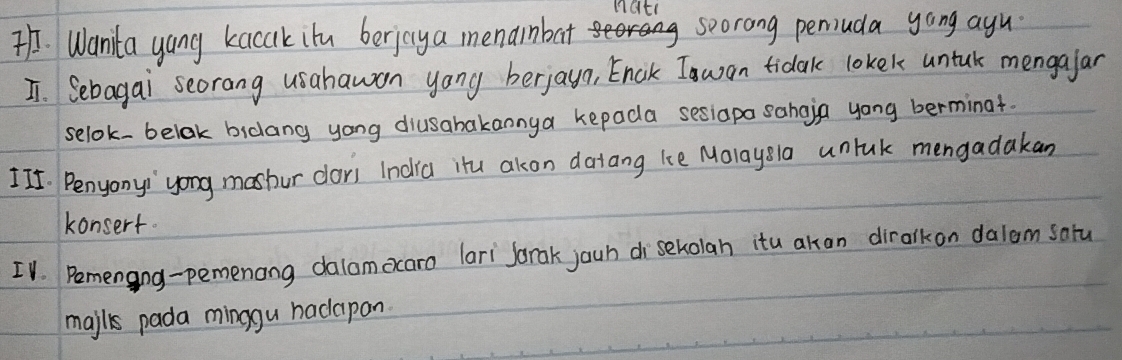 hati
7) I. Wanita yang kacak itu berjaya menambat seorang seorang pemuda yang ayu.
II. Sebagai seorang usahawan yang berjaya, Encik Iswan tidak lokek untuk mengajar
selok-belok bidang yang diusahakannya kepada sesiapa sahaja yang berminat.
III. Penyanyi yang mashur dari India itu akan datang ke Malaysia untuk mengadakan
konsert.
IV. Pemenang-pemenang dalam acara lari jarak jauh di sekolah itu akan diraikan dalam satu
majlis pada minggu hadapan.